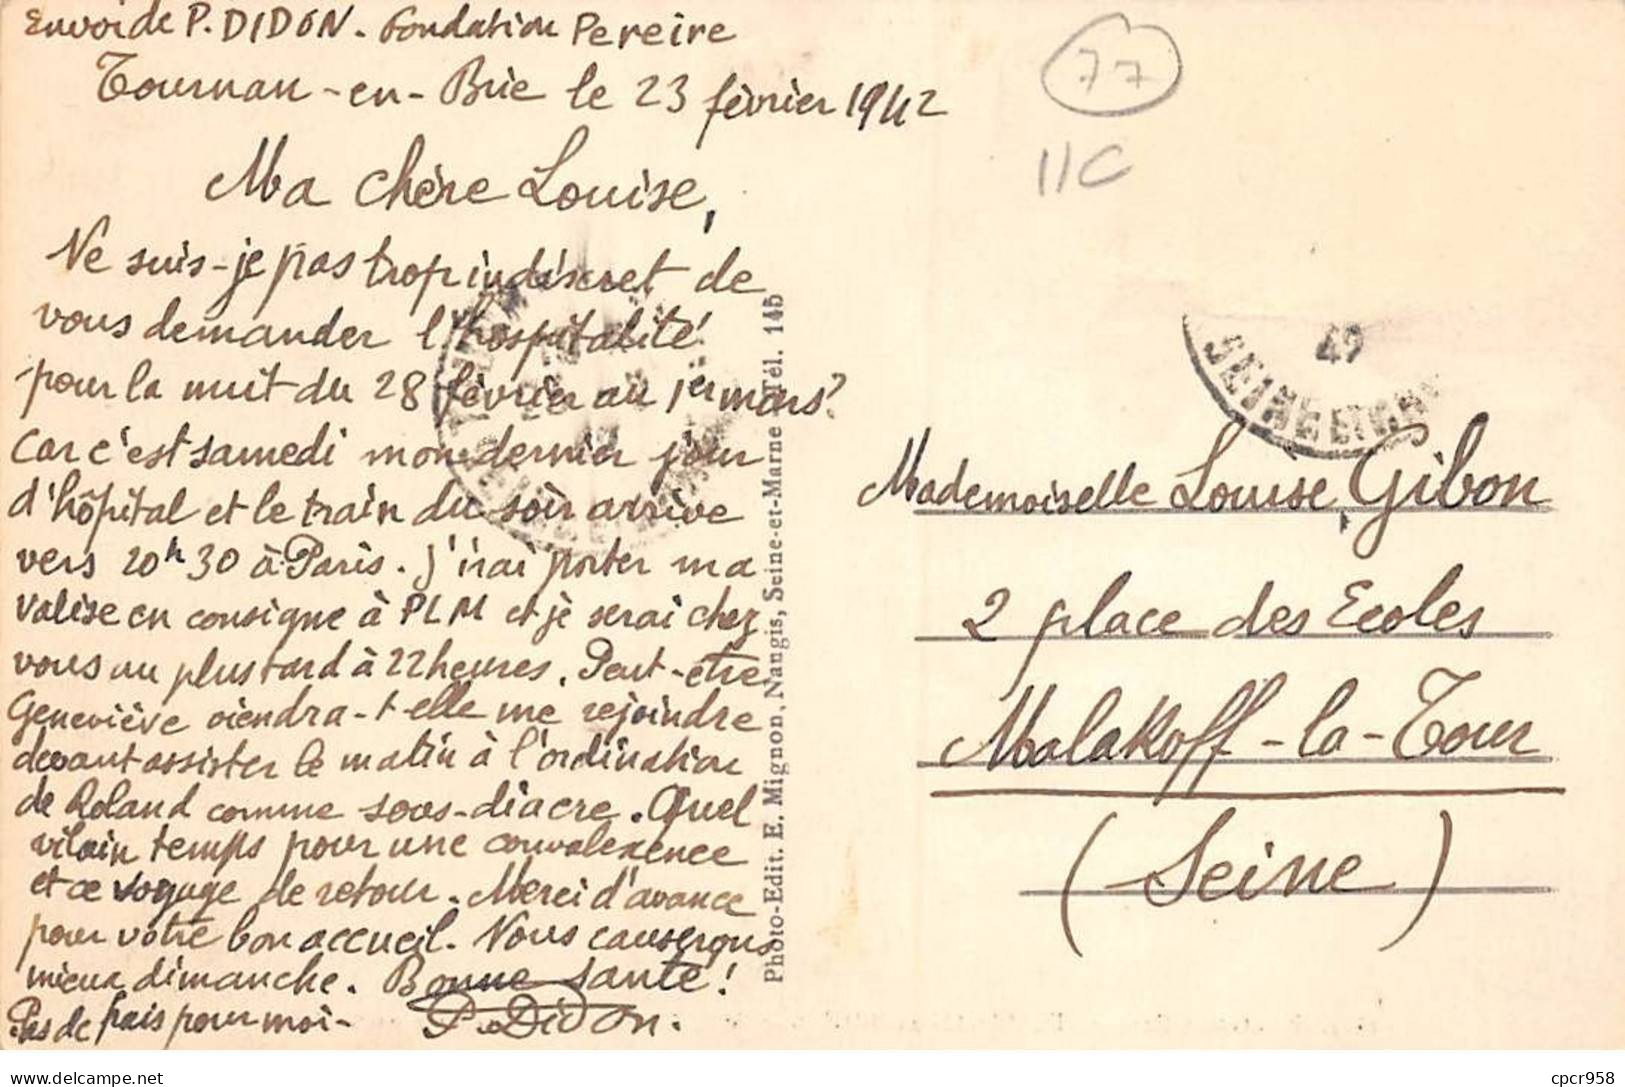 Envoi de P. DIDON. Fondation Pereire
Tournan-en-Brie le 23 février 1942
Ma chère Louise,
Ne suis-je pas trop indiscret de
vous demander l'hospitalité
pour la nuit du 28 février au 1er mars?
Car c'est samedi mon dernier jour
d'hôpital et le train du soir arrive
vers 20h30 à Paris. J'irai porter ma
valise en consigne à PLM et je serai chez
vous au plus tard à 22 heures. Peut-être
Geneviève viendra-t-elle me rejoindre
devant assister le matin à l'ordination
de Roland comme sous-diacre. Quel
vilain temps pour une convalexence
et ce voyage de retour. Merci d'avance
pour votre bon accueil. Nous causerons
mieux dimanche. Bonne santé!
Pas de frais pour moi- P. Didon.
Photo-Edit. E. Mignon, Nangis, Seine-et-Marne Tél. 145
77
11C
49
SEINE ET
Mademoiselle Louise Gibon
2 place des Ecoles
Malakoff-la-Tour
(Seine)
delcampe.net
cpcr958